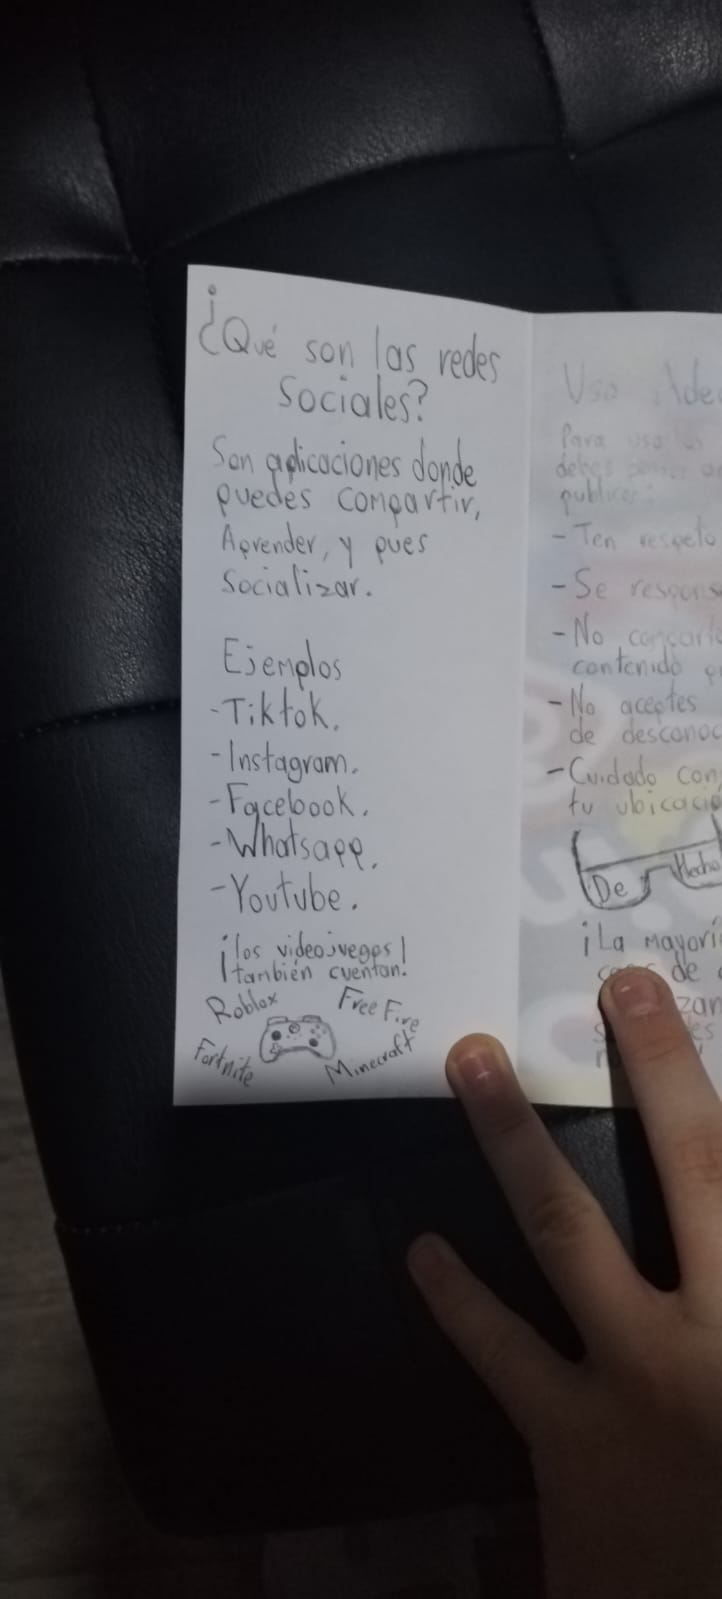 ¿Qué son las redes
Sociales?
Son aplicaciones donde
puedes compartir,
Aprender, y pues
Socializar.
Ejemplos
-Tiktok.
-Instagram.
-Facebook.
-Whatsapp.
-Youtube.
¡los videojuegos
también cuentan!
Roblox
Free Fire
Fortnite
Minecraft
Uso
Para
debes
- Ten respeto
- Se
- No
contenido
- No aceptes
de
- Cuidado con
tu
De Hecho
¡La
de